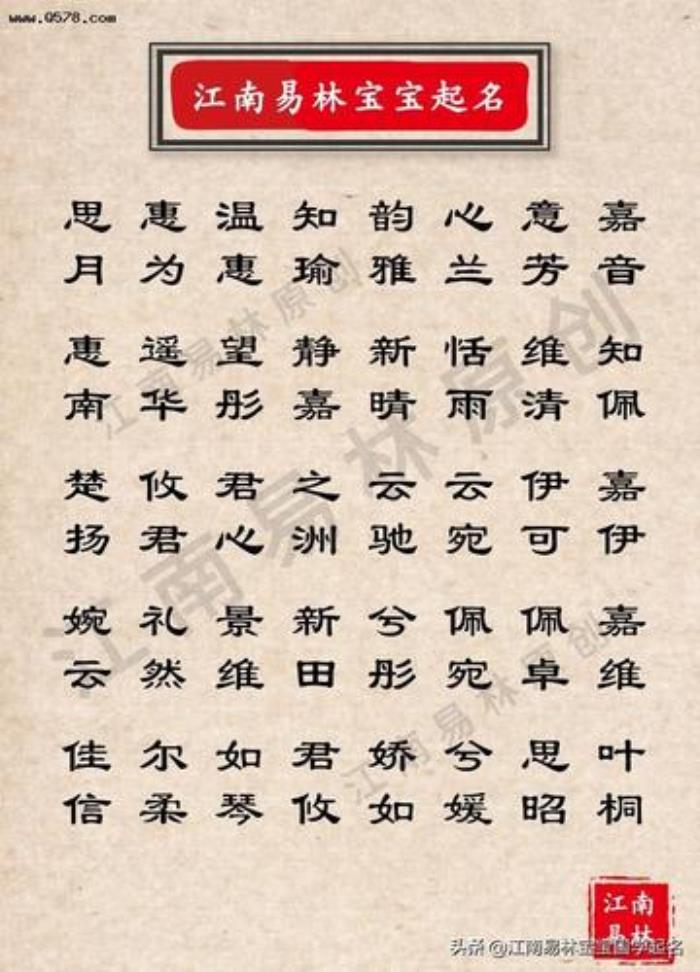 www.Q578.com
江南易林宝宝起名
思 惠 温 知 韵 心 意 嘉
月 为 惠 瑜 雅 兰 芳 音
惠 遥 望 静 新 恬 维 知
南 华 彤 嘉 晴 雨 清 佩
楚 攸 君 之 云 云 伊 嘉
扬 君 心 洲 驰 宛 可 伊
婉 礼 景 新 兮 佩 佩 嘉
云 然 维 田 彤 宛 卓 维
佳 尔 如 君 娇 兮 思 叶
信 柔 琴 攸 如 媛 昭 桐
江南易林原创
江南易林原创
江南易林原创
江南
易林
头条 @江南易林宝宝国学起名